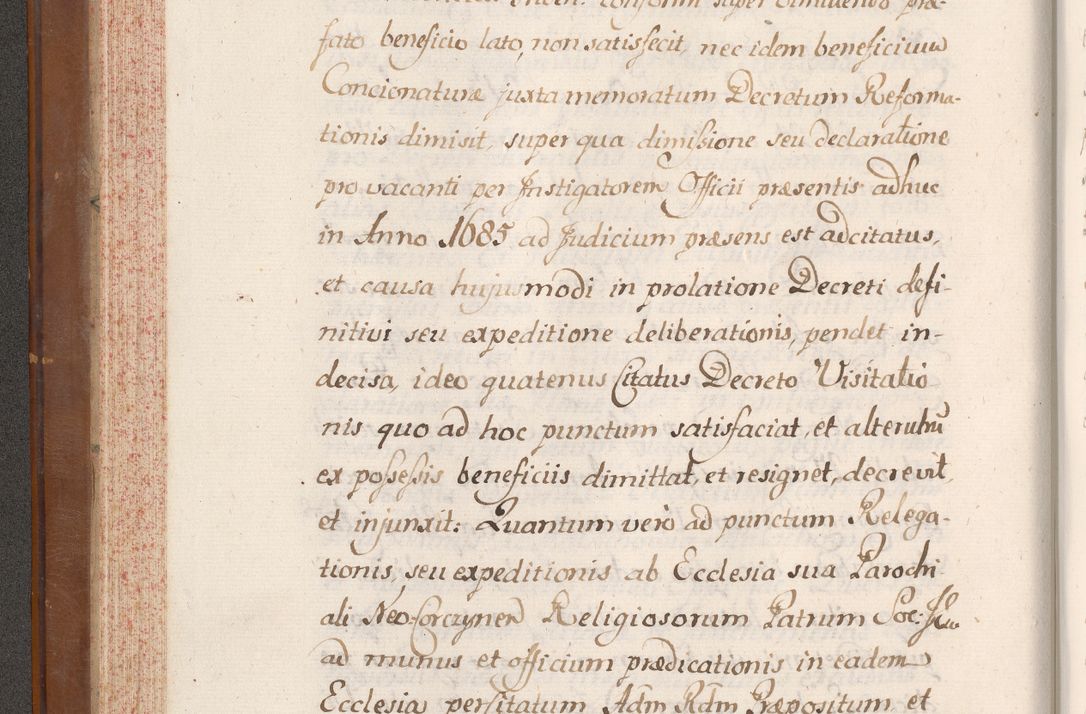 conformi super dimittendo præ-
fato beneficio lato, non satisfecit, nec idem beneficium
Concionaturæ juxta memoratum Decretum Reforma-
tionis dimisit, super qua dimissione seu declaratione
pro vacanti per Instigatorem Officii præsentis adhuc
in Anno 1685 ad Judicium præsens est adcitatus,
et causa hujusmodi in prolatione Decreti defi-
nitivi seu expeditione deliberationis, pendet in-
decisa, ideo quatenus Citatus Decreto Visitatio
nis quo ad hoc punctum satisfaciat, et alterutrũ
ex possessis beneficiis dimittat, et resignet, decrevit,
et injunxit: Quantum vero ad punctum Relega-
tionis, seu expeditionis ab Ecclesia sua Parochi
ali Neo-Corczynen Religiosorum Patrum Soc:
ad munus et officium prædicationis in eadem
Ecclesia per citatum Adm Rdm Præpositum et